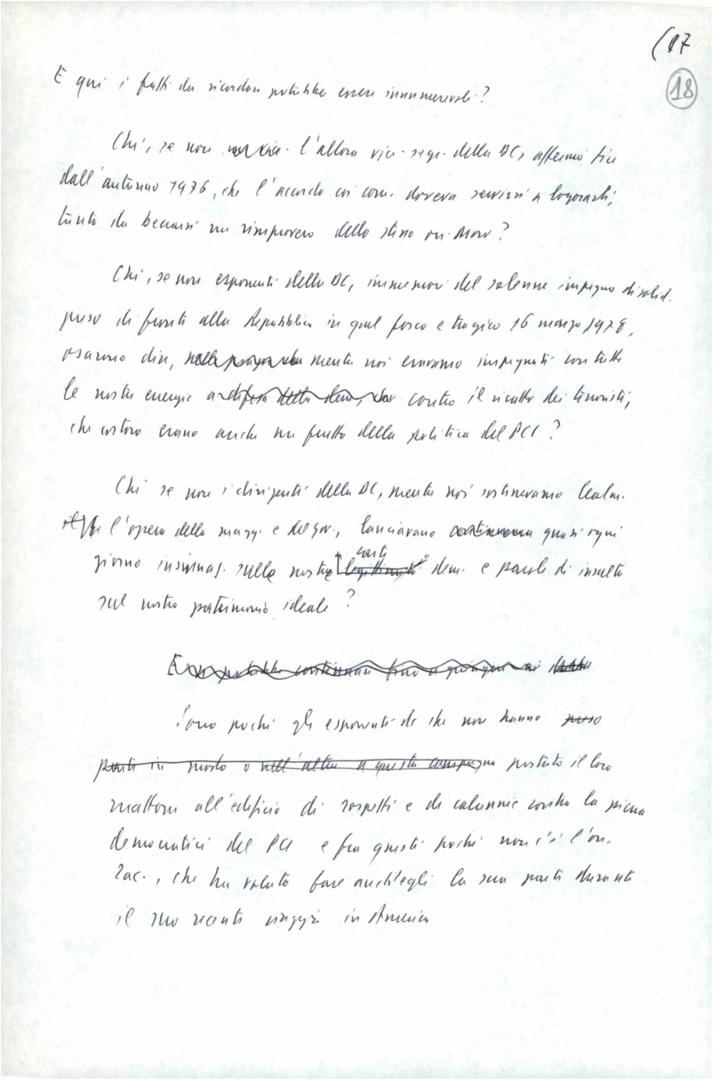 (17
18
E qui i fatti da ricordare potrebbero essere innumerevoli?
Chi, se non l'allora vice-segr. della DC, affermò fin
dall'autunno 1976, che l'accordo coi com. doveva servirsi a logorarli,
tanto da beccarsi un rimprovero dello stesso on. Moro?
Chi, se non esponenti della DC, immemori del solenne impegno di solid.
preso di fronte alla Repubblica in quel fosco e tragico 16 marzo 1978,
osarono dire, mentre noi eravamo impegnati con tutte
le nostre energie contro il ricatto dei terroristi,
che costoro erano anche un frutto della politica del PCI?
Chi se non i dirigenti della DC, mentre noi sostenevamo lealm.
l'opera della magg. e del gov., lanciavano quasi ogni
carte
giorno insinuaz. sulle nostre dem. e parole di insulto
sul nostro patrimonio ideale?
Sono pochi gli esponenti dc che non hanno preso
parte in modo o nell'altro a questa campagna portato il loro
mattone all'edificio di sospetti e di calunnie contro la piena
democraticità del PCI e fra questi pochi non c'è l'on.
Zac., che ha voluto fare anch'egli la sua parte durante
il suo recente viaggio in America